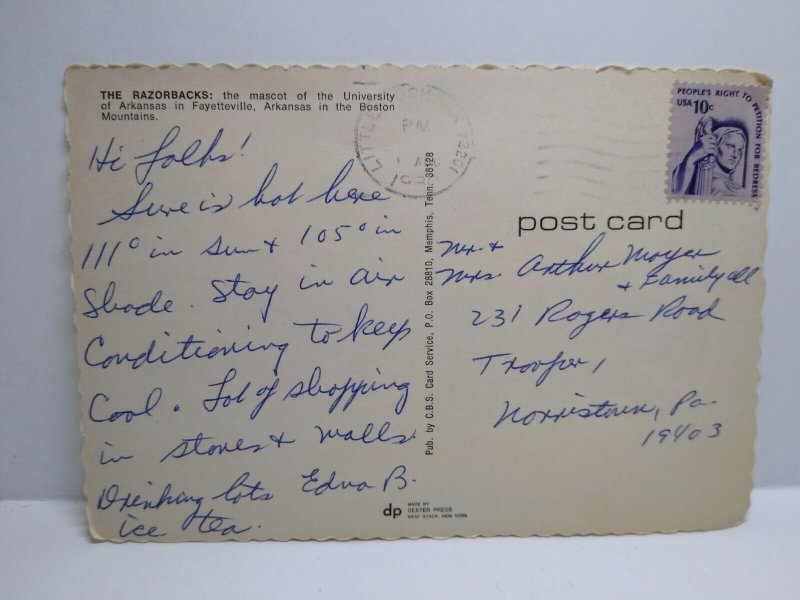 THE RAZORBACKS: the mascot of the University
of Arkansas in Fayetteville, Arkansas in the Boston
Mountains.
Hi folks!
Sure is hot here
111° in sun & 105° in
Shade. Stay in air
Conditioning to keep
Cool. Lot of shopping
in stores & malls
Drinking lots Edna B.
ice tea.
Pub. by C.B.S. Card Service, P.O. Box 28810, Memphis, Tenn. 38128
LITTLE
72201
PM
PEOPLE'S RIGHT TO PETITION FOR REDRESS
USA 10c
post card
Mr. &
Mrs. Arthur Moyer
& Family all
231 Rogers Road
Trooper,
Norristown, Pa.
19403
dp
MADE BY
DEXTER PRESS
WEST NYACK, NEW YORK